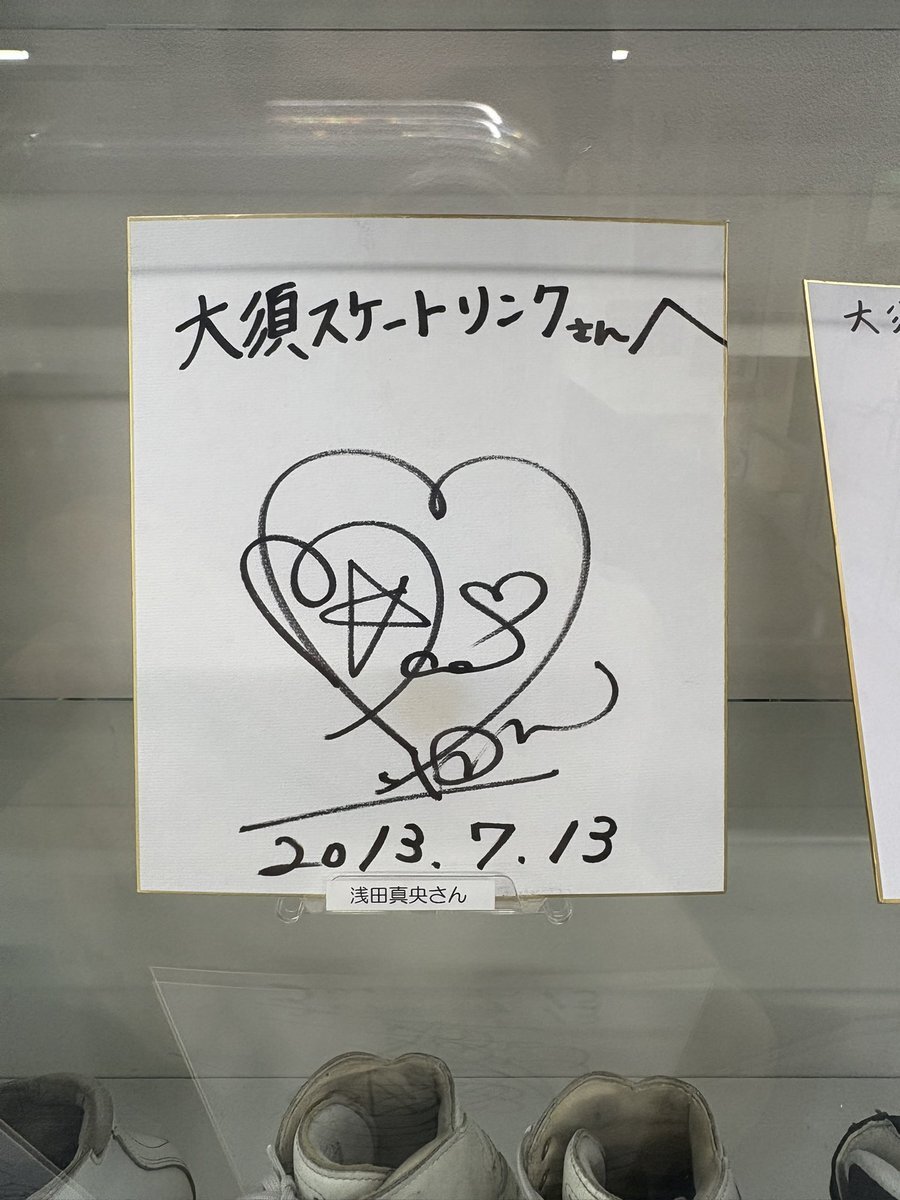 大須スケートリンクさんへ
2013.7.13
浅田真央さん
大須